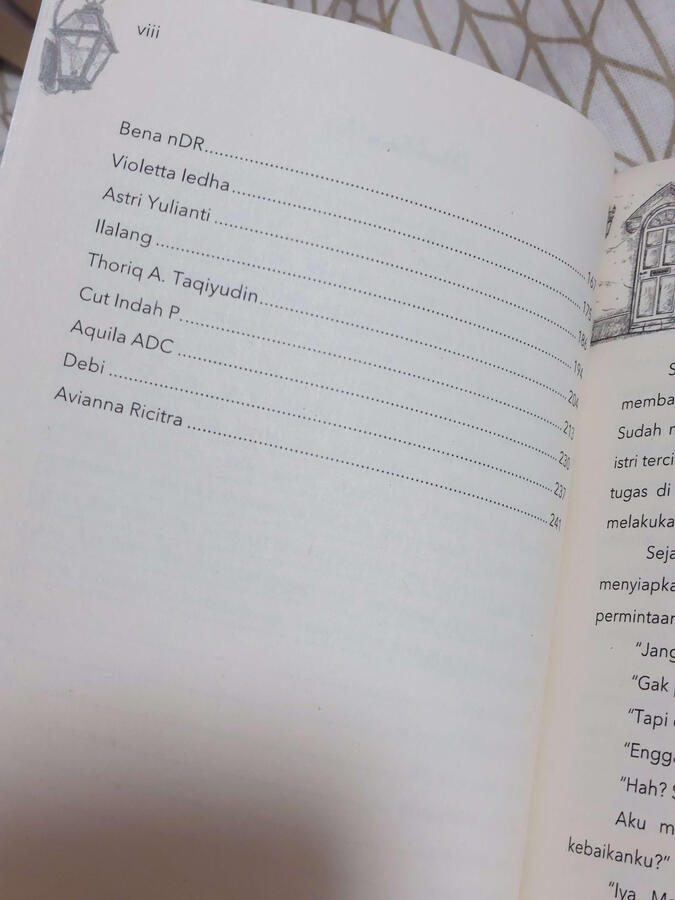 viii
Bena nDR 167
Violetta Iedha 175
Astri Yulianti 186
Ilalang 194
Thoriq A. Taqiyudin 204
Cut Indah P. 213
Aquila ADC 230
Debi 237
Avianna Ricitra 241
Sudah
istri
tugas di
Sej
menyiapka
permintaan
"Jang
"Gak
"Tapi
"Engg
"Hah?
Aku m
kebaikanku?"
"Iya,